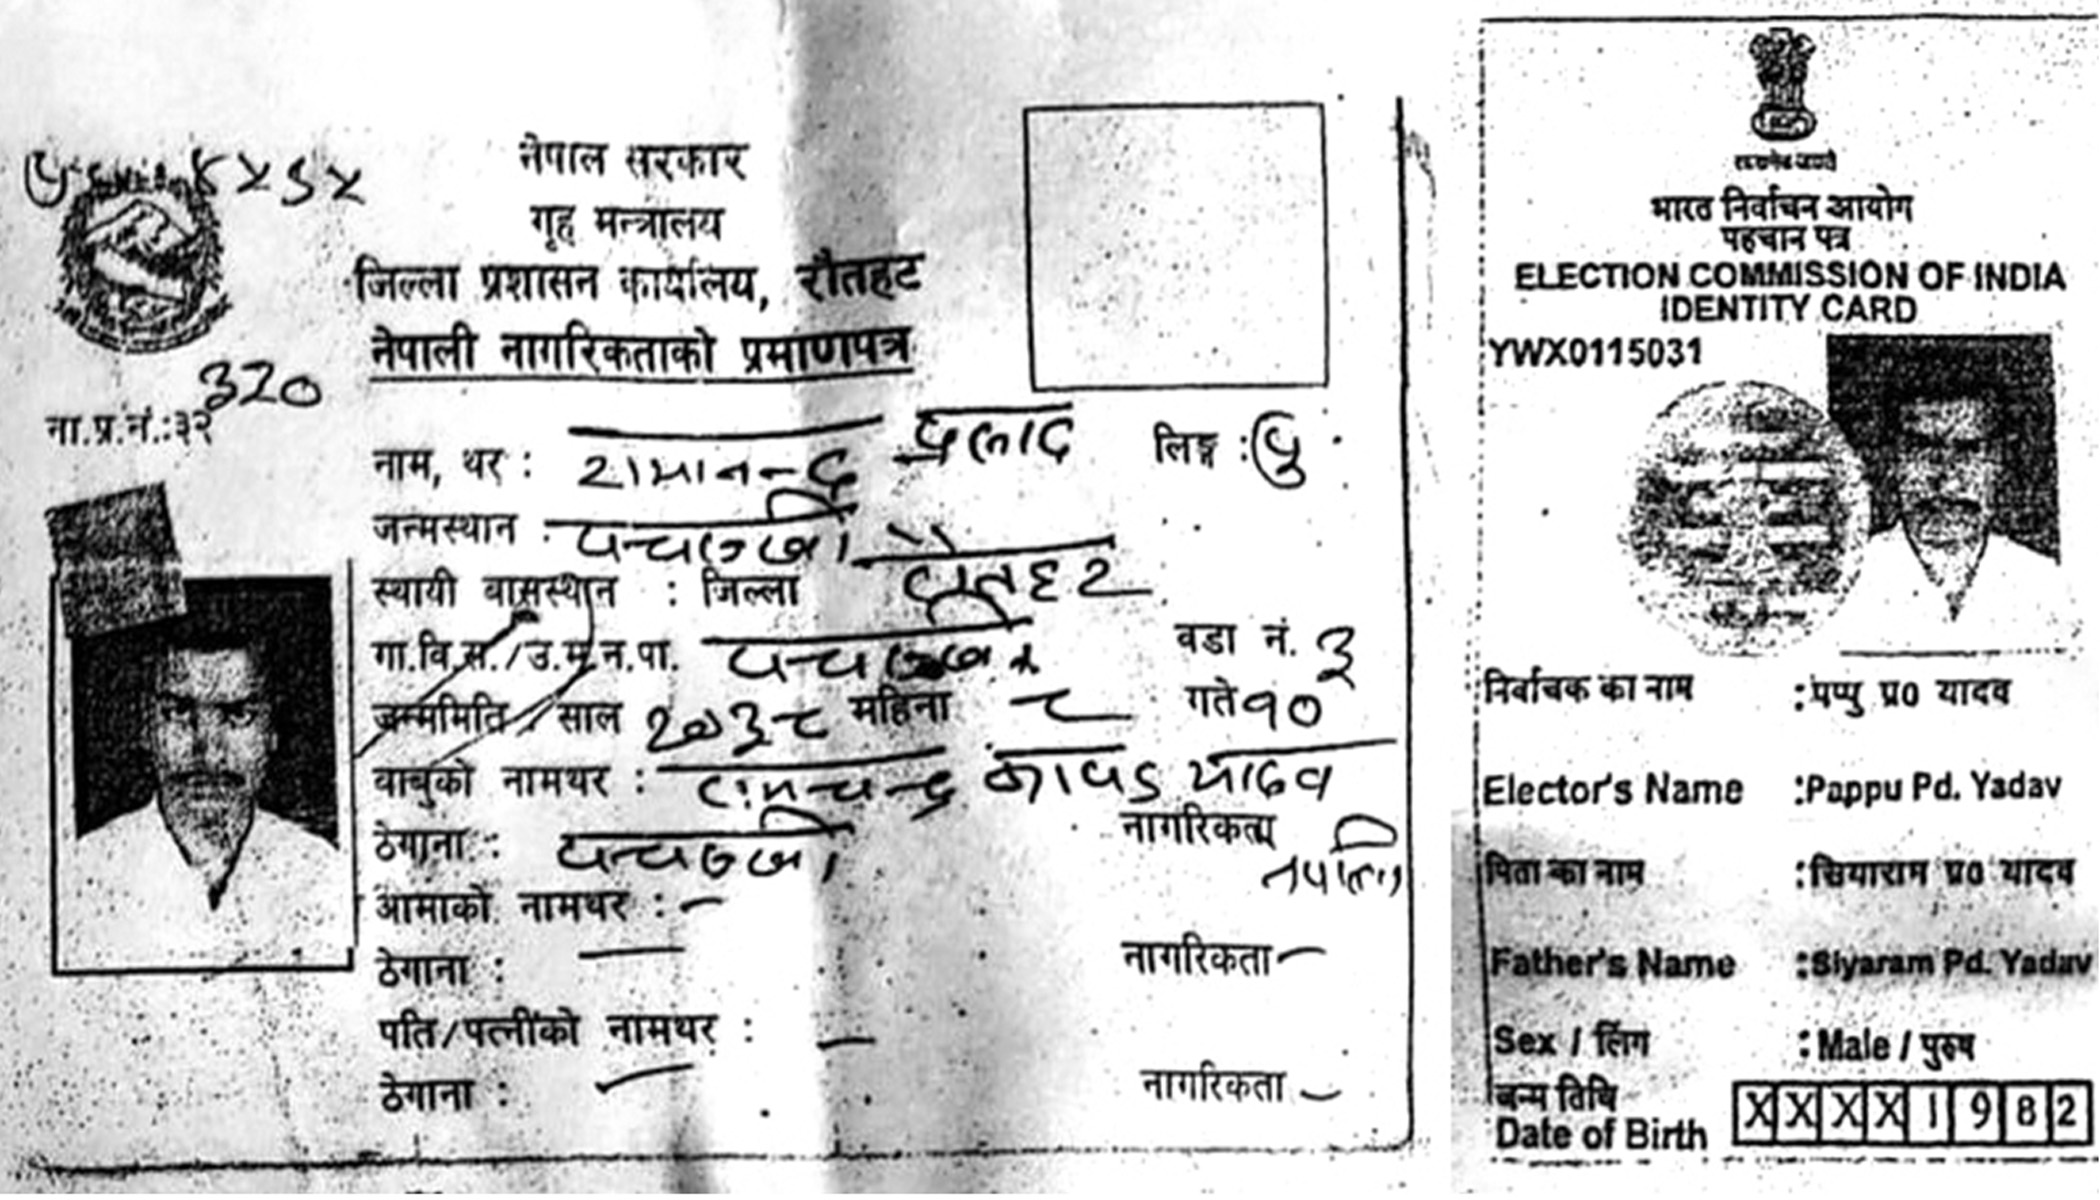 नेपाल सरकार
गृह मन्त्रालय
जिल्ला प्रशासन कार्यालय, रौतहट
नेपाली नागरिकताको प्रमाणपत्र
ना.प्र.नं.:३२ 320
नाम, थर : रामानन्द प्रसाद लिङ्ग : पु
जन्मस्थान :
स्थायी वासस्थान : जिल्ला रौतहट
गा.वि.स./उ.म.न.पा. वडा नं. ३
जन्ममिति / साल २०३८ महिना ८ गते १०
बाबुको नामथर : रामचन्द्र यादव
ठेगाना : नागरिकता
आमाको नामथर : –
ठेगाना : – नागरिकता –
पति/पत्नीको नामथर : –
ठेगाना : – नागरिकता –
भारत निर्वाचन आयोग
पहचान पत्र
ELECTION COMMISSION OF INDIA
IDENTITY CARD
YWX0115031
निर्वाचक का नाम : पप्पु प्र० यादव
Elector's Name : Pappu Pd. Yadav
पिता का नाम : सियाराम प्र० यादव
Father's Name : Siyaram Pd. Yadav
Sex / लिंग : Male / पुरुष
जन्म तिथि
Date of Birth XXXX1982